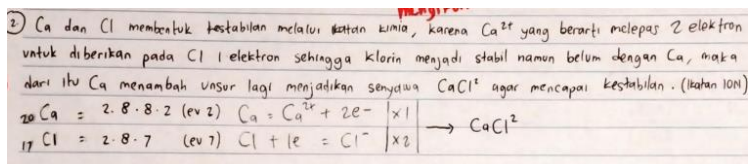 mengiron
2. Ca dan Cl membentuk kestabilan melalui ikatan kimia, karena Ca²⁺ yang berarti melepas 2 elektron
untuk diberikan pada Cl 1 elektron sehingga klorin menjadi stabil namun belum dengan Ca, maka
dari itu Ca menambah unsur lagi menjadikan senyawa CaCl² agar mencapai kestabilan. (Ikatan ION)
₂₀Ca = 2.8.8.2 (ev 2) Ca = Ca²⁺ + 2e- | x1
₁₇Cl = 2.8.7 (ev 7) Cl + 1e = Cl⁻ | x2 → CaCl²